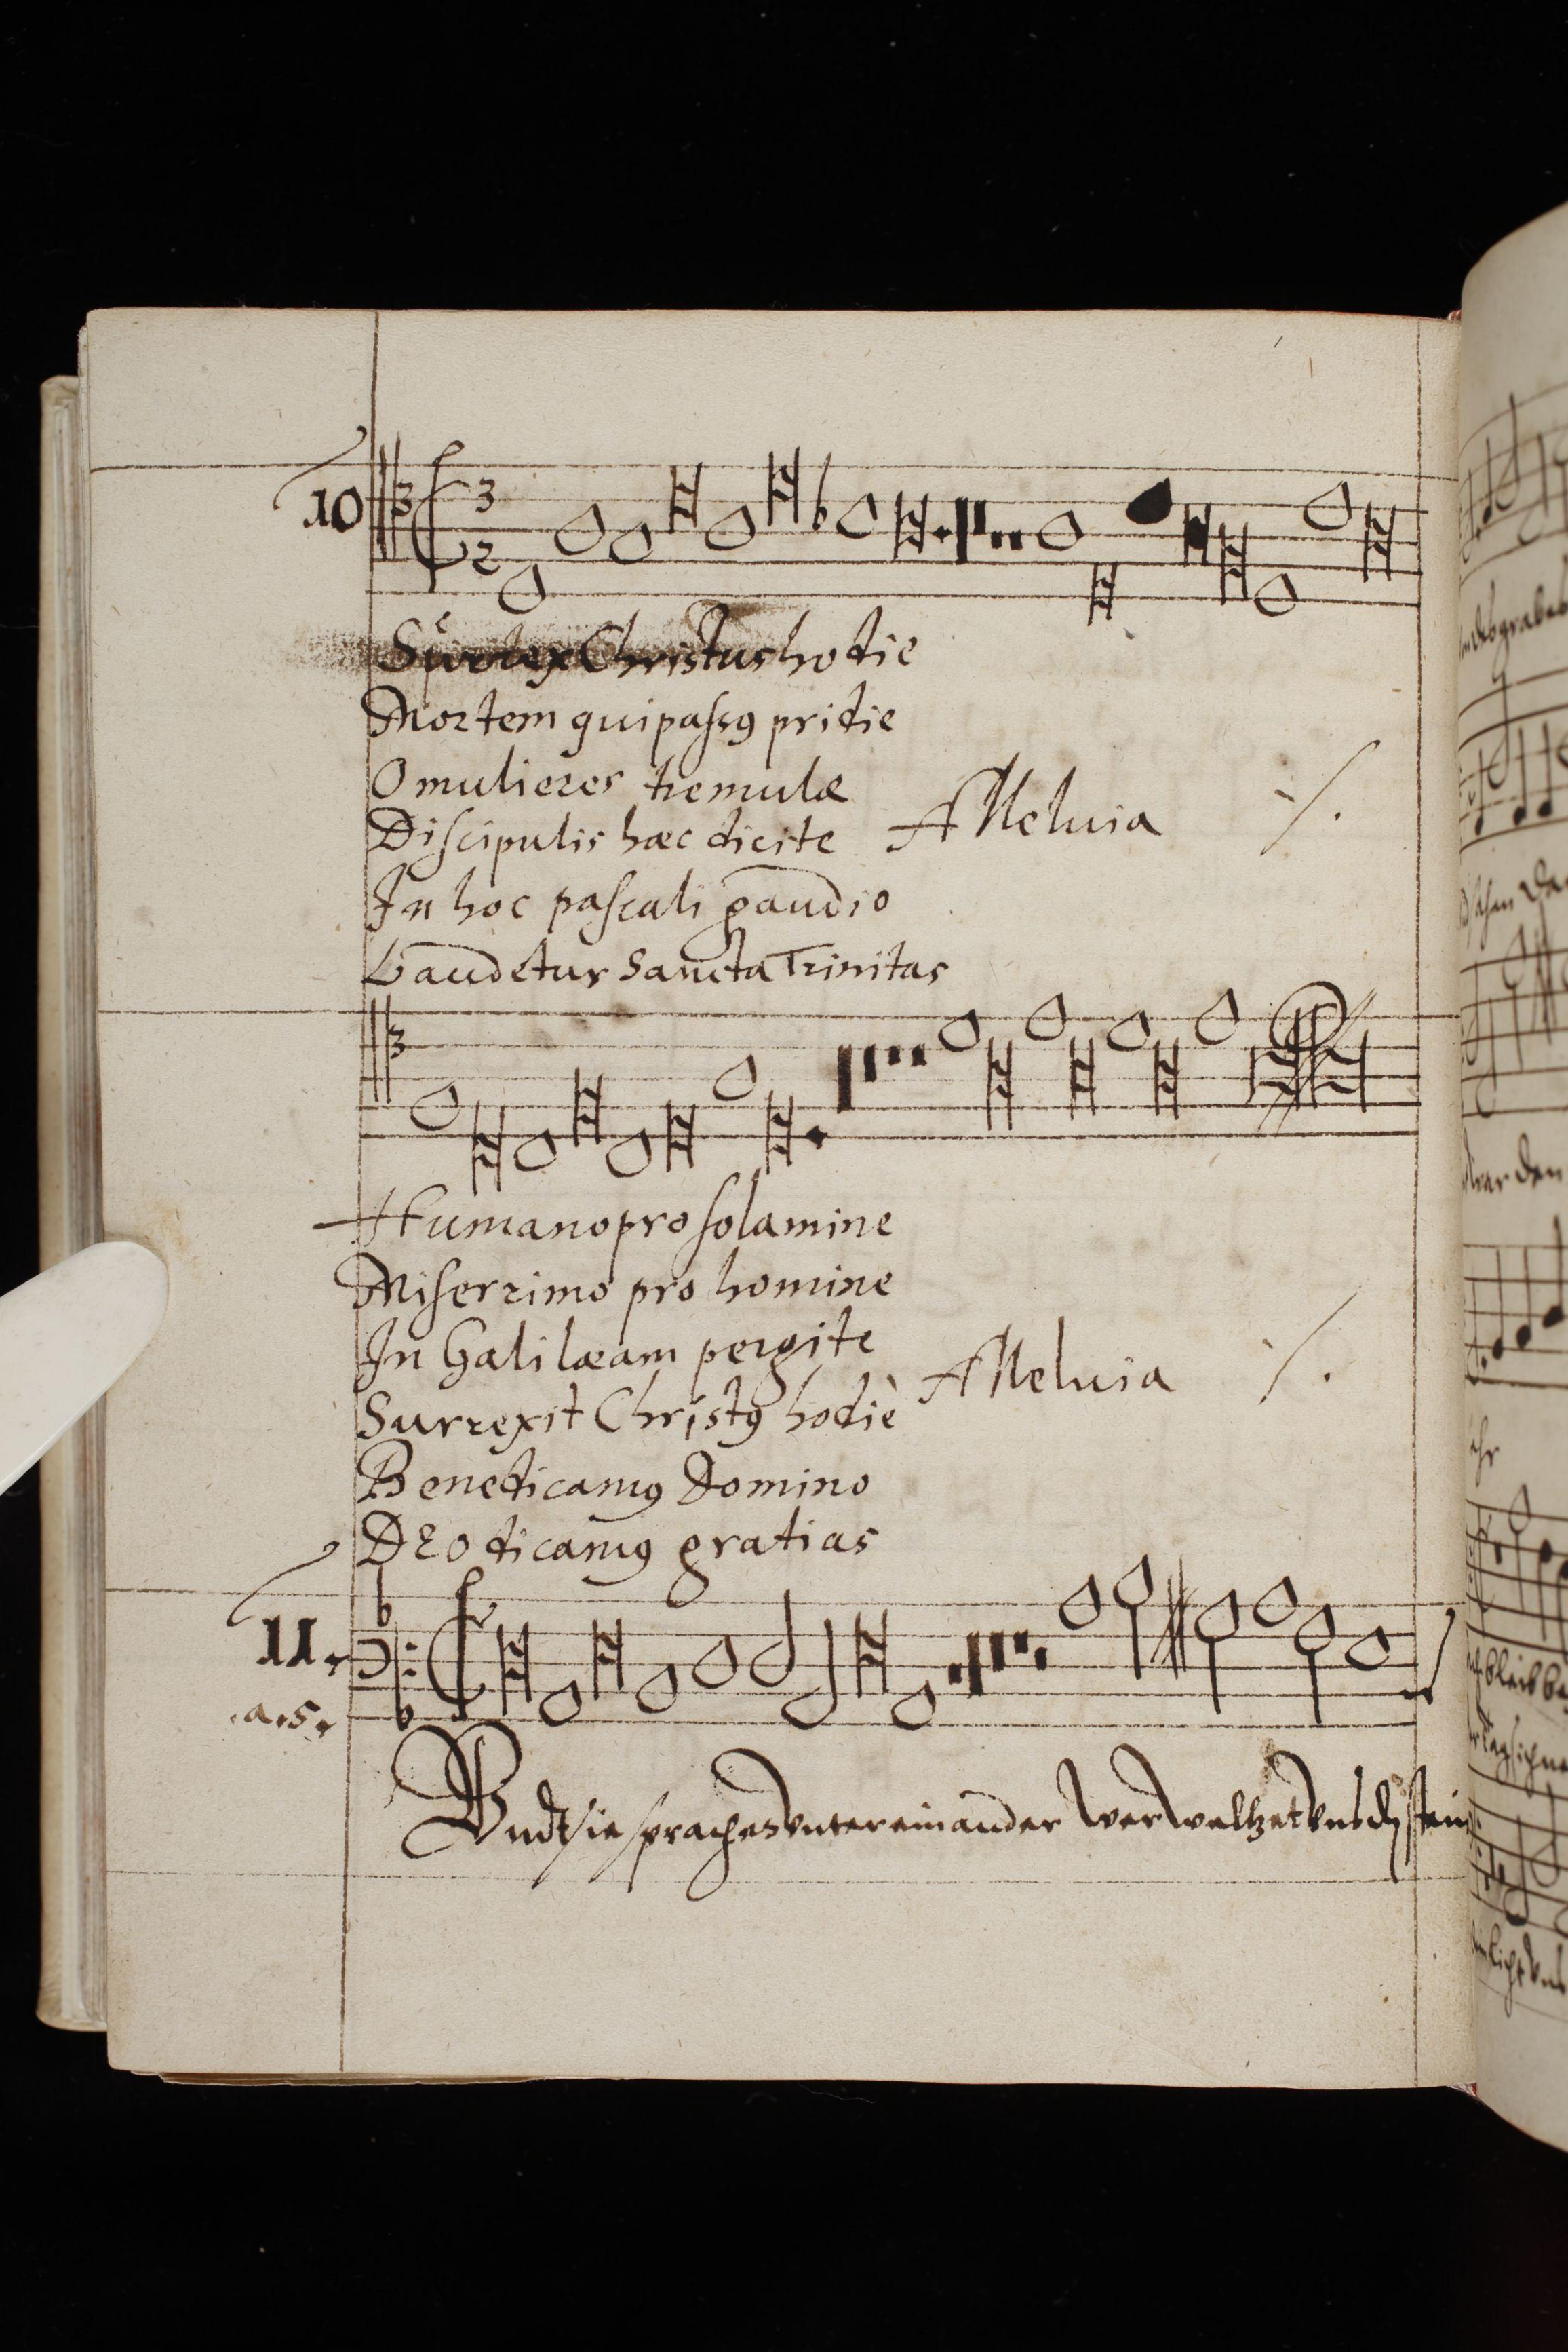 10
3
2
Surrex Christus hodie
Mortem qui passꝰ pridie
O mulieres tremulæ
Discipulis hæc dicite Alleluia ⁒
In hoc pascali gaudio
Laudetur Sancta Trinitas
Humano pro solamine
Miserrimo pro homine
In Galilæam pergite
Surrexit Christꝰ hodiè Alleluia ⁒
Benedicamꝰ Domino
DEo dicamꝰ gratias
11.
.a.5.
Vndt sie sprachen vntereinander Wer weltzet vns dē stein